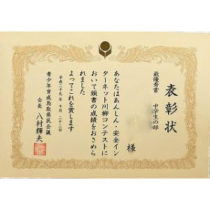 表彰状
最優秀賞 中学生の部
様
あなたはあんしん・安全イン
ターネット川柳コンテストに
おいて頭書の成績をおさめら
れました
よってこれを賞します
平成二十五年十一月二十三日
青少年育成鳥取県民会議
会長 八村輝夫